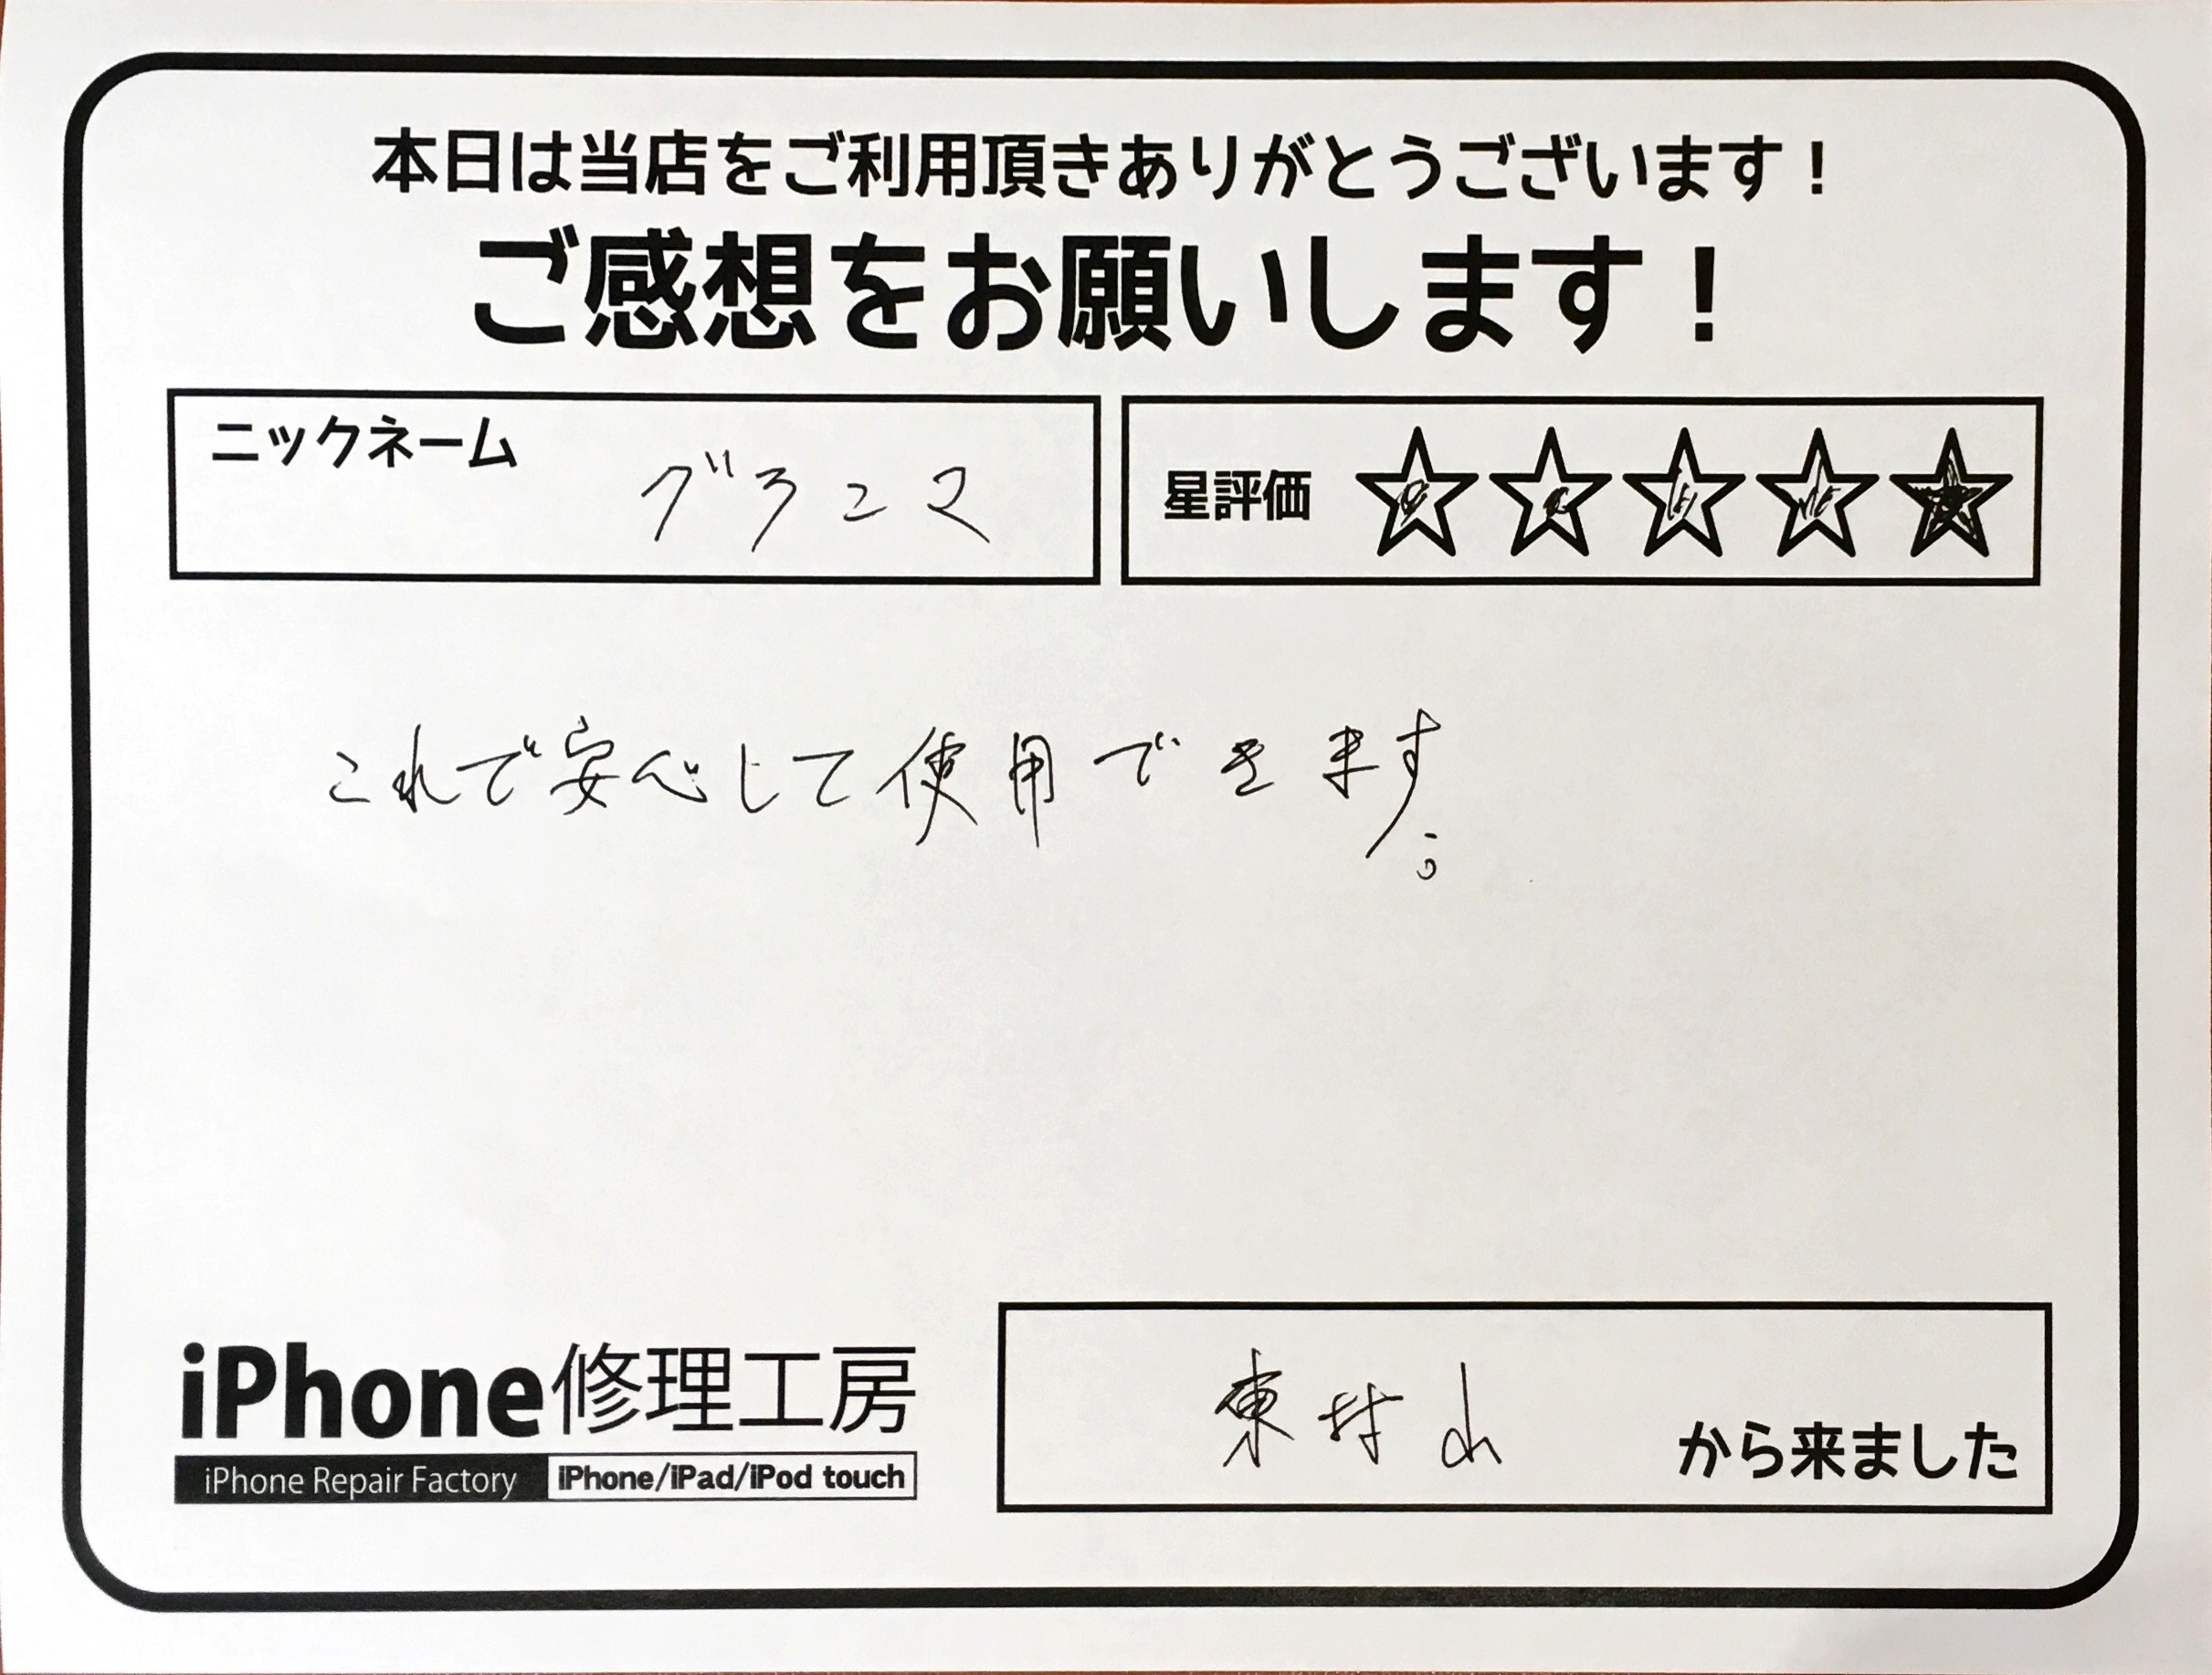 本日は当店をご利用頂きありがとうございます！
ご感想をお願いします！
ニックネーム
星評価
これで安心して使用できます。
iPhone修理工房
iPhone Repair Factory iPhone/iPad/iPod touch
東村山 から来ました